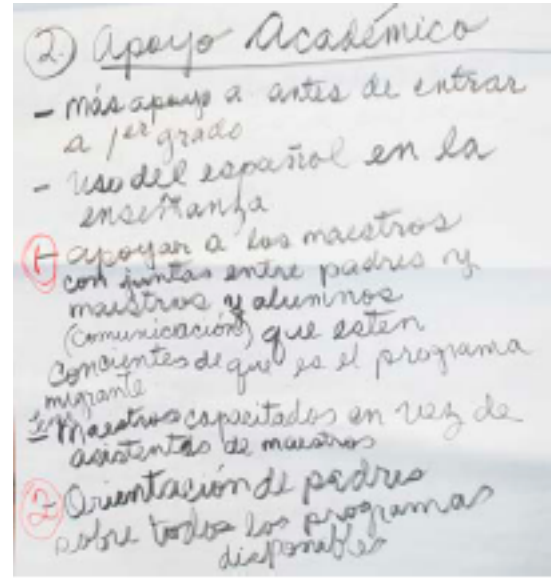 2.) Apoyo Académico
- más apoyo a antes de entrar
a 1er grado
- uso del español en la
enseñanza
1- apoyar a los maestros
con juntas entre padres y
maestros y alumnos
(comunicación) que esten
concientes de que es el programa
migrante
- Maestros capacitados en vez de
asistentes de maestros
2- Orientación de padres
sobre todos los programas
disponibles